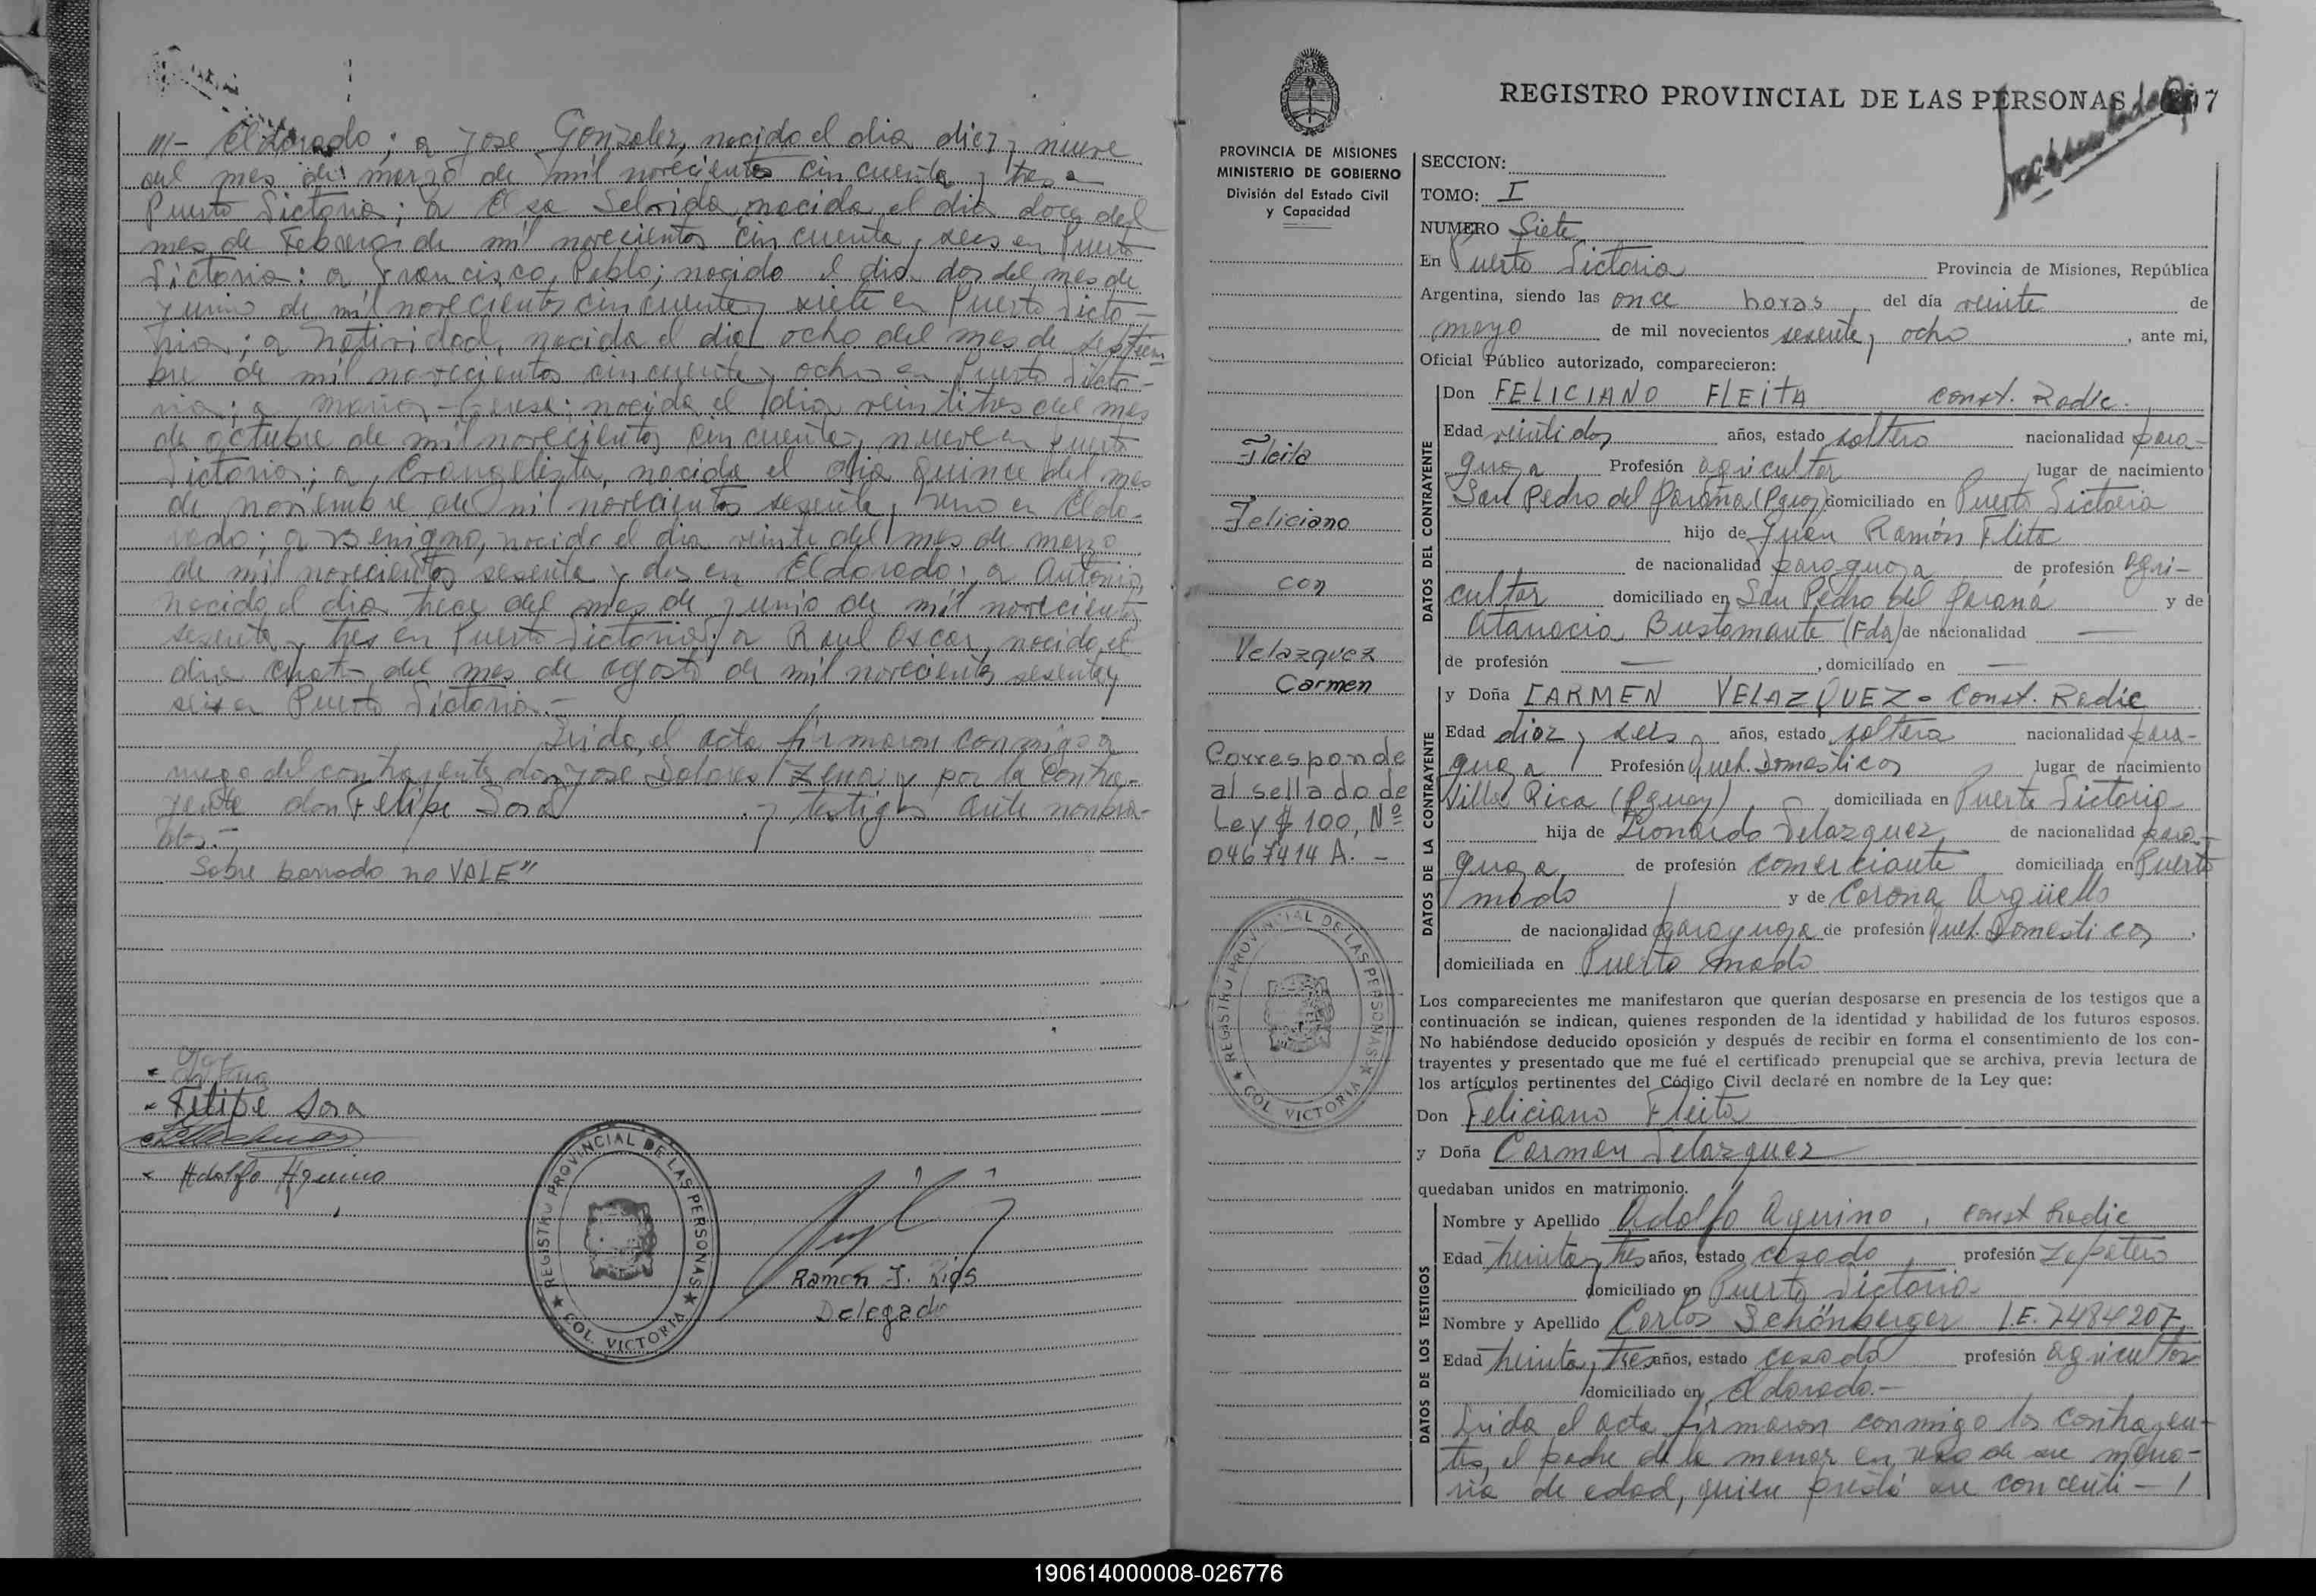 III- Eldorado; a Jose Gonzalez, nacido el dia diez y nueve
del mes de marzo de mil novecientos cincuenta y tres
Puerto Victoria; a Elsa Selvida, nacida el dia doce del
mes de Febrero de mil novecientos cincuenta y seis en Puerto
Victoria: a Francisco Pablo; nacido el dia dos del mes de
Junio de mil novecientos cincuenta y siete en Puerto Victo-
ria; a Natividad, nacida el dia ocho del mes de septiem
bre de mil novecientos cincuenta y ocho en Puerto Victo-
ria; a Maria Teresa: nacida el dia veintitres del mes
de octubre de mil novecientos cincuenta y nueve en Puerto
Victoria; a Evangelista, nacida el dia quince del mes
de noviembre de mil novecientos sesenta y uno en Eldo-
rado; a Benigno, nacido el dia veinte del mes de marzo
de mil novecientos sesenta y dos en Eldorado; a Antonio,
nacido el dia trece del mes de junio de mil novecientos
sesenta y tres en Puerto Victoria; a Raul Oscar, nacido el
dia cuatro del mes de agosto de mil novecientos sesenta y
seis en Puerto Victoria.-
Leida el acta firmaron conmigo a
ruego del contrayente don Jose Dolores y por la Contra-
yente don Felipe Sosa y testigos ante nombra-
dos.-
Sobre borrado no VALE"
Felipe Sosa
Adolfo Aquino
REGISTRO PROVINCIAL DE LAS PERSONAS
COL. VICTORIA
Ramon J. Rios
Delegado
REGISTRO PROVINCIAL DE LAS PERSONAS 7
PROVINCIA DE MISIONES
MINISTERIO DE GOBIERNO
División del Estado Civil
y Capacidad
Fleita
Feliciano
con
Velazquez
Carmen
Corresponde
al sellado de
Ley $ 100, Nº
0467414 A. -
REGISTRO PROVINCIAL DE LAS PERSONAS
COL. VICTORIA
SECCION:
TOMO: I
NUMERO Siete
En Puerto Victoria Provincia de Misiones, República
Argentina, siendo las once horas, del día veinte de
mayo de mil novecientos sesenta y ocho, ante mi,
Oficial Público autorizado, comparecieron:
DATOS DEL CONTRAYENTE
Don FELICIANO FLEITA const. Radic.
Edad veintidos años, estado soltero nacionalidad para-
guaya Profesión agricultor lugar de nacimiento
San Pedro del Paraná (Pguay) domiciliado en Puerto Victoria
hijo de Juan Ramón Fleita
de nacionalidad paraguaya de profesión Agri-
cultor domiciliado en San Pedro del Paraná y de
Atanacia Bustamante (Fda) de nacionalidad —
de profesión —, domiciliado en —
DATOS DE LA CONTRAYENTE
y Doña CARMEN VELAZQUEZ - Const. Radic
Edad diez y seis años, estado soltera nacionalidad para-
guaya Profesión Queh. Domesticos lugar de nacimiento
Villa Rica (Pguay), domiciliada en Puerto Victoria
hija de Leonardo Velazquez de nacionalidad para-
guaya de profesión comerciante domiciliada en Puerto
Mado y de Corona Argüello
de nacionalidad paraguaya de profesión Queh. Domesticos,
domiciliada en Puerto Mado
Los comparecientes me manifestaron que querían desposarse en presencia de los testigos que a
continuación se indican, quienes responden de la identidad y habilidad de los futuros esposos.
No habiéndose deducido oposición y después de recibir en forma el consentimiento de los con-
trayentes y presentado que me fué el certificado prenupcial que se archiva, previa lectura de
los artículos pertinentes del Código Civil declaré en nombre de la Ley que:
Don Feliciano Fleita
y Doña Carmen Velazquez
quedaban unidos en matrimonio.
DATOS DE LOS TESTIGOS
Nombre y Apellido Adolfo Aquino, const Radic
Edad treinta y tres años, estado casado, profesión Zapatero
domiciliado en Puerto Victoria
Nombre y Apellido Carlos Schönberger L.E. 7484207
Edad treinta y tres años, estado casado profesión agricultor
domiciliado en Eldorado.-
Leida el acta firmaron conmigo los contrayen-
tes, el padre de la menor en uso de su mino-
ria de edad, quien prestó su concenti-/
190614000008-026776